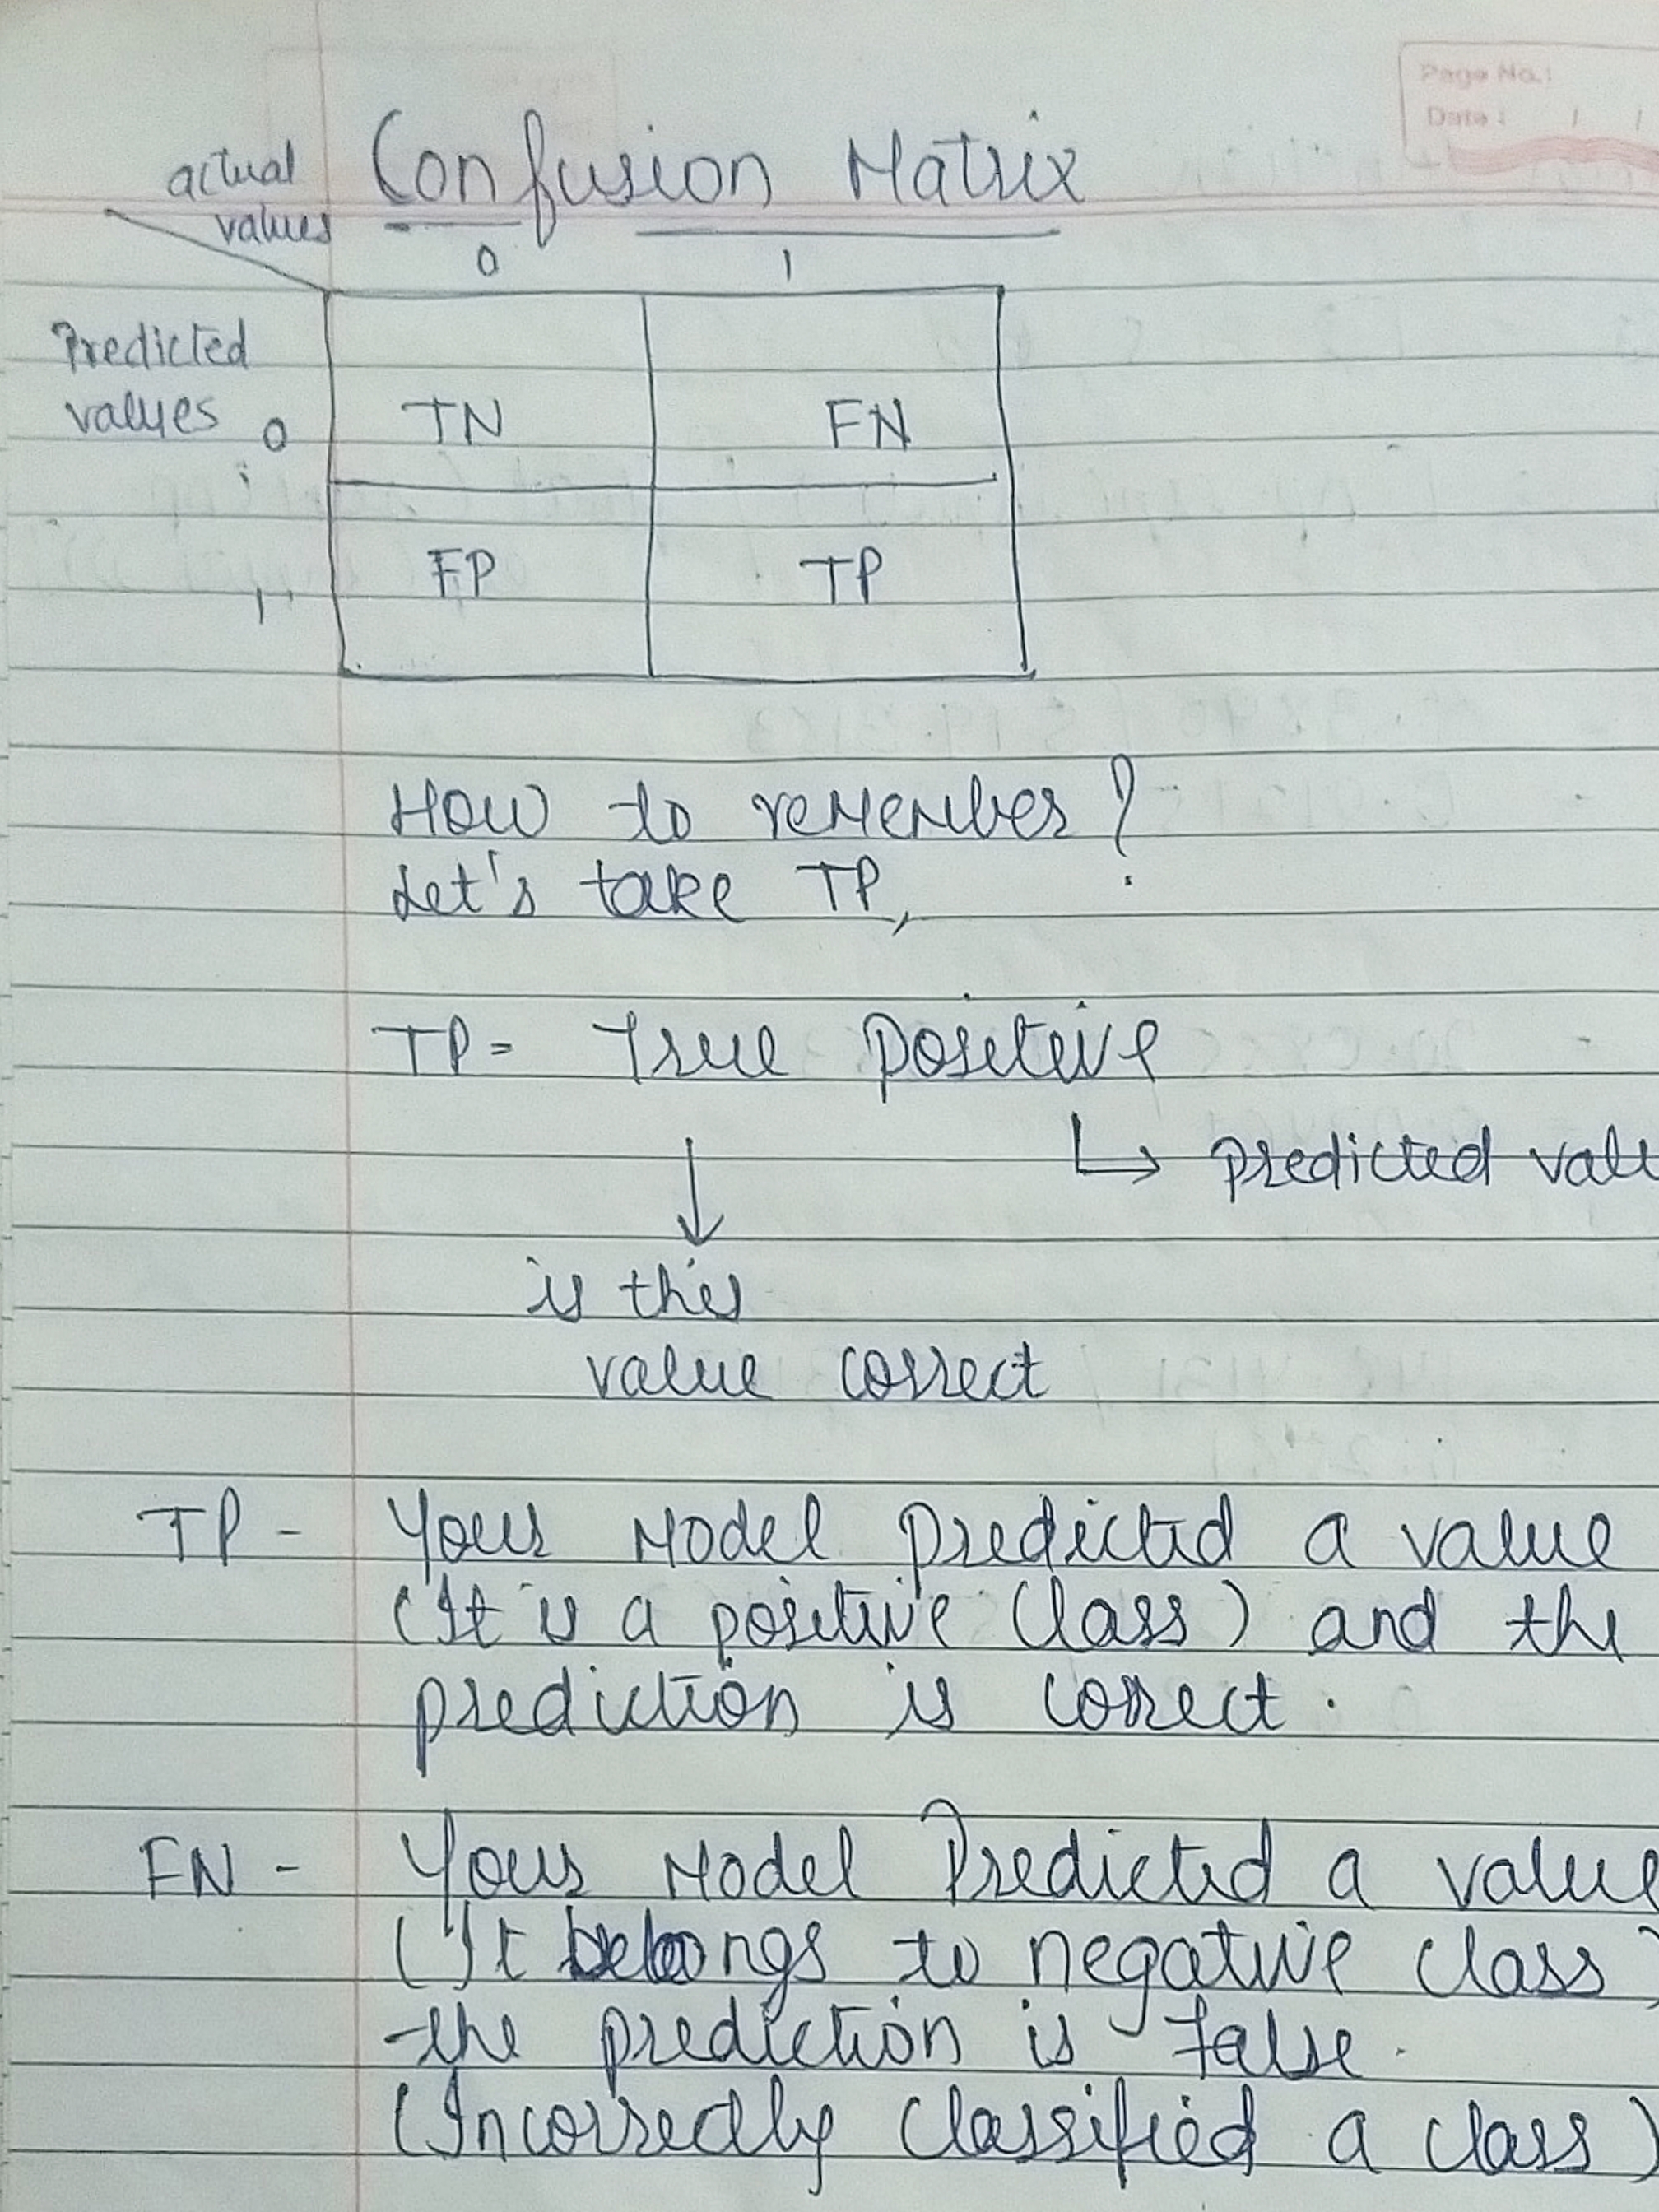 Page No.:
Date: / /
actual values
Confusion Matrix
0 1
Predicted
values 0
TN FN
1
FP TP
How to remember?
Let's take TP,
TP = True positive
↳ predicted
↓
is this
value correct
TP - Your Model predicted a value
(It is a positive class) and the
prediction is correct.
FN - Your Model Predicted a value
(It belongs to negative class)
the prediction is false.
(Incorrectly classified a class)